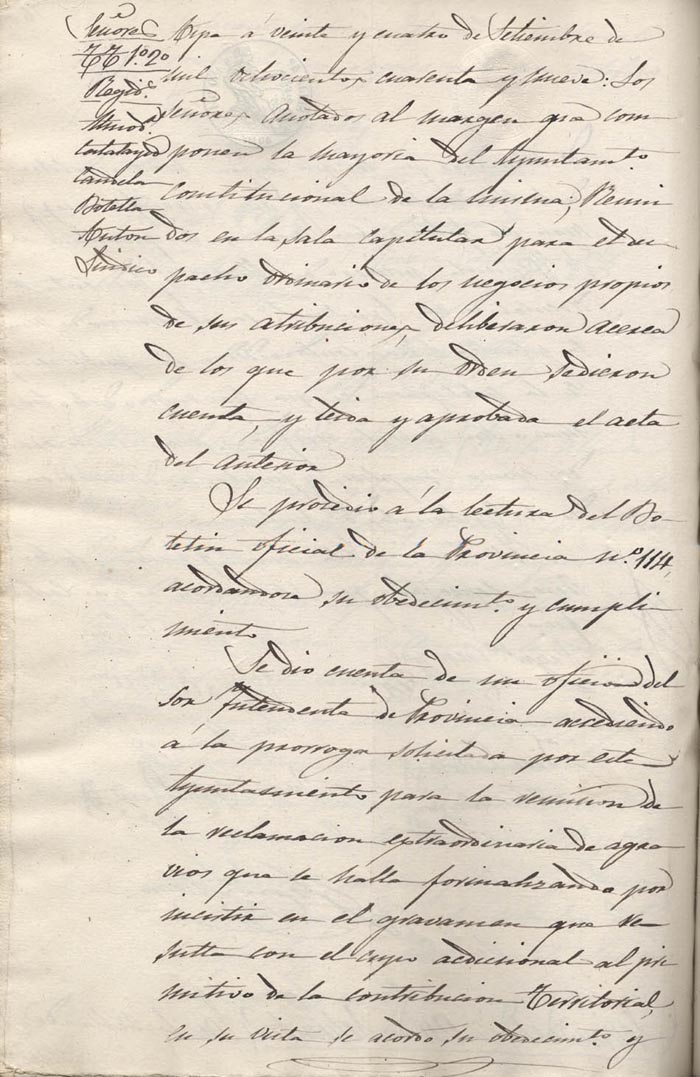 Señores
TT 1º 2º
Regid.s
Almod.r
Calatayud
Candela
Botella
Anton
Sindico
Aspe á veinte y cuatro de Setiembre de
mil ochocientos cuarenta y nueve: Los
Señores Anotados al margen que com
ponen la mayoria del Ayuntam.to
Constitucional de la misma; Reuni
dos en la sala capitular para el des
pacho ordinario de los negocios propios
de sus atribuciones, deliberaron acerca
de los que por su orden se dieron
cuenta, y leida y aprobada el acta
del anterior
Se procedio á la lectura del Bo-
letin oficial de la Provincia n.º 114,
acordandose su obedecim.to y cumpli-
miento
Se dio cuenta de un oficio del
Sor Yntendente de Provincia accediendo
á la prorroga solicitada por este
Ayuntamiento para la remision de
la reclamacion extraordinaria de agra
vios que se halla formalizando por
insistir en el gravamen que re-
sulta con el cupo adicional al pri
mitivo de la contribucion Territorial,
en su vista se acordo su obedecim.to y